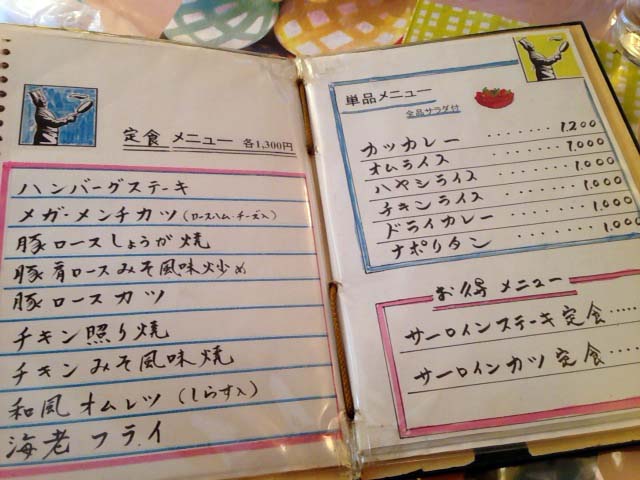 定食 メニュー 各1,300円
ハンバーグステーキ
メガ・メンチカツ(ロースハム・チーズ入)
豚ロースしょうが焼
豚肩ロースみそ風味炒め
豚ロースカツ
チキン照り焼
チキンみそ風味焼
和風オムレツ(しらす入)
海老フライ
単品メニュー
全品サラダ付
カツカレー ・・・・・・ 1.200
オムライス ・・・・・・ 1.000
ハヤシライス ・・・・・・ 1.000
チキンライス ・・・・・・ 1.000
ドライカレー ・・・・・・ 1.000
ナポリタン ・・・・・・ 1.000
お得メニュー
サーロインステーキ定食・・・・・
サーロインカツ定食・・・・・